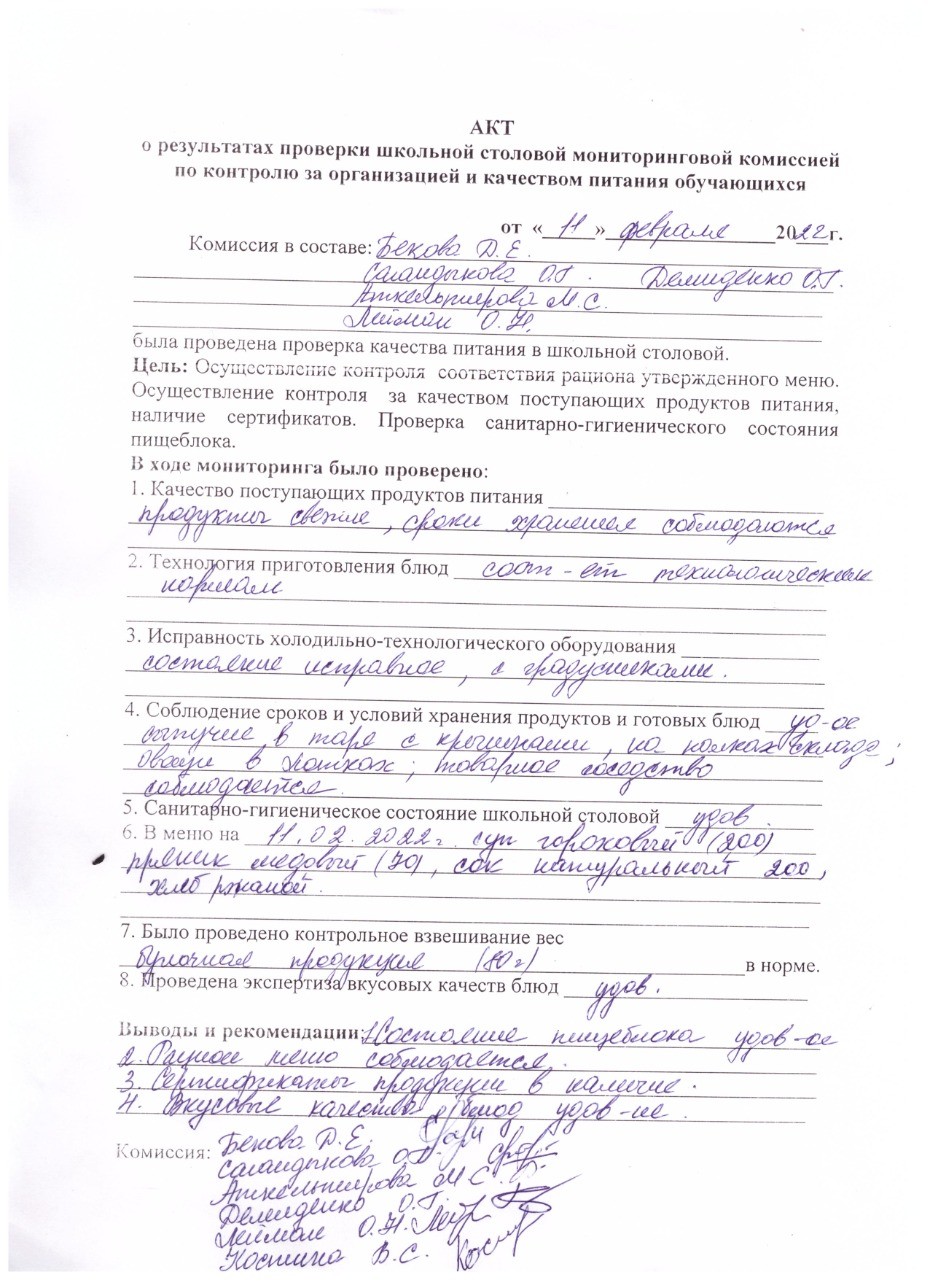 АКТ
о результатах проверки школьной столовой мониторинговой комиссией
по контролю за организацией и качеством питания обучающихся
от «11» февраля 2022г.
Комиссия в составе: Бекова Д.Е.
Сагандыкова О.Г. Демиденко О.Г.
Аткельтирова М.С.
Лейман О.Н.
была проведена проверка качества питания в школьной столовой.
Цель: Осуществление контроля соответствия рациона утвержденного меню.
Осуществление контроля за качеством поступающих продуктов питания,
наличие сертификатов. Проверка санитарно-гигиенического состояния
пищеблока.
В ходе мониторинга было проверено:
1. Качество поступающих продуктов питания
продукты свежие, сроки хранения соблюдаются
2. Технология приготовления блюд соот-ет технологическим
нормам
3. Исправность холодильно-технологического оборудования
состояние исправное, с градусниками.
4. Соблюдение сроков и условий хранения продуктов и готовых блюд уд-ое
сыпучие в таре с крышками, на полках склада;
овощи в лотках; товарное соседство
соблюдается.
5. Санитарно-гигиеническое состояние школьной столовой удов.
6. В меню на 11.02.2022г. суп гороховый (200)
пряник медовый (70), сок натуральный 200,
хлеб ржаной.
7. Было проведено контрольное взвешивание вес
булочная продукция (80г) в норме.
8. Проведена экспертиза вкусовых качеств блюд удов.
Выводы и рекомендации: 1. Состояние пищеблока удов-ое
2. Рацион меню соблюдается.
3. Сертификаты продукции в наличие.
4. Вкусовые качества блюд удов-ые.
Комиссия: Бекова Д.Е.
Сагандыкова О.Г.
Аткельтирова М.С.
Демиденко О.Г.
Лейман О.Н.
Костина В.С.